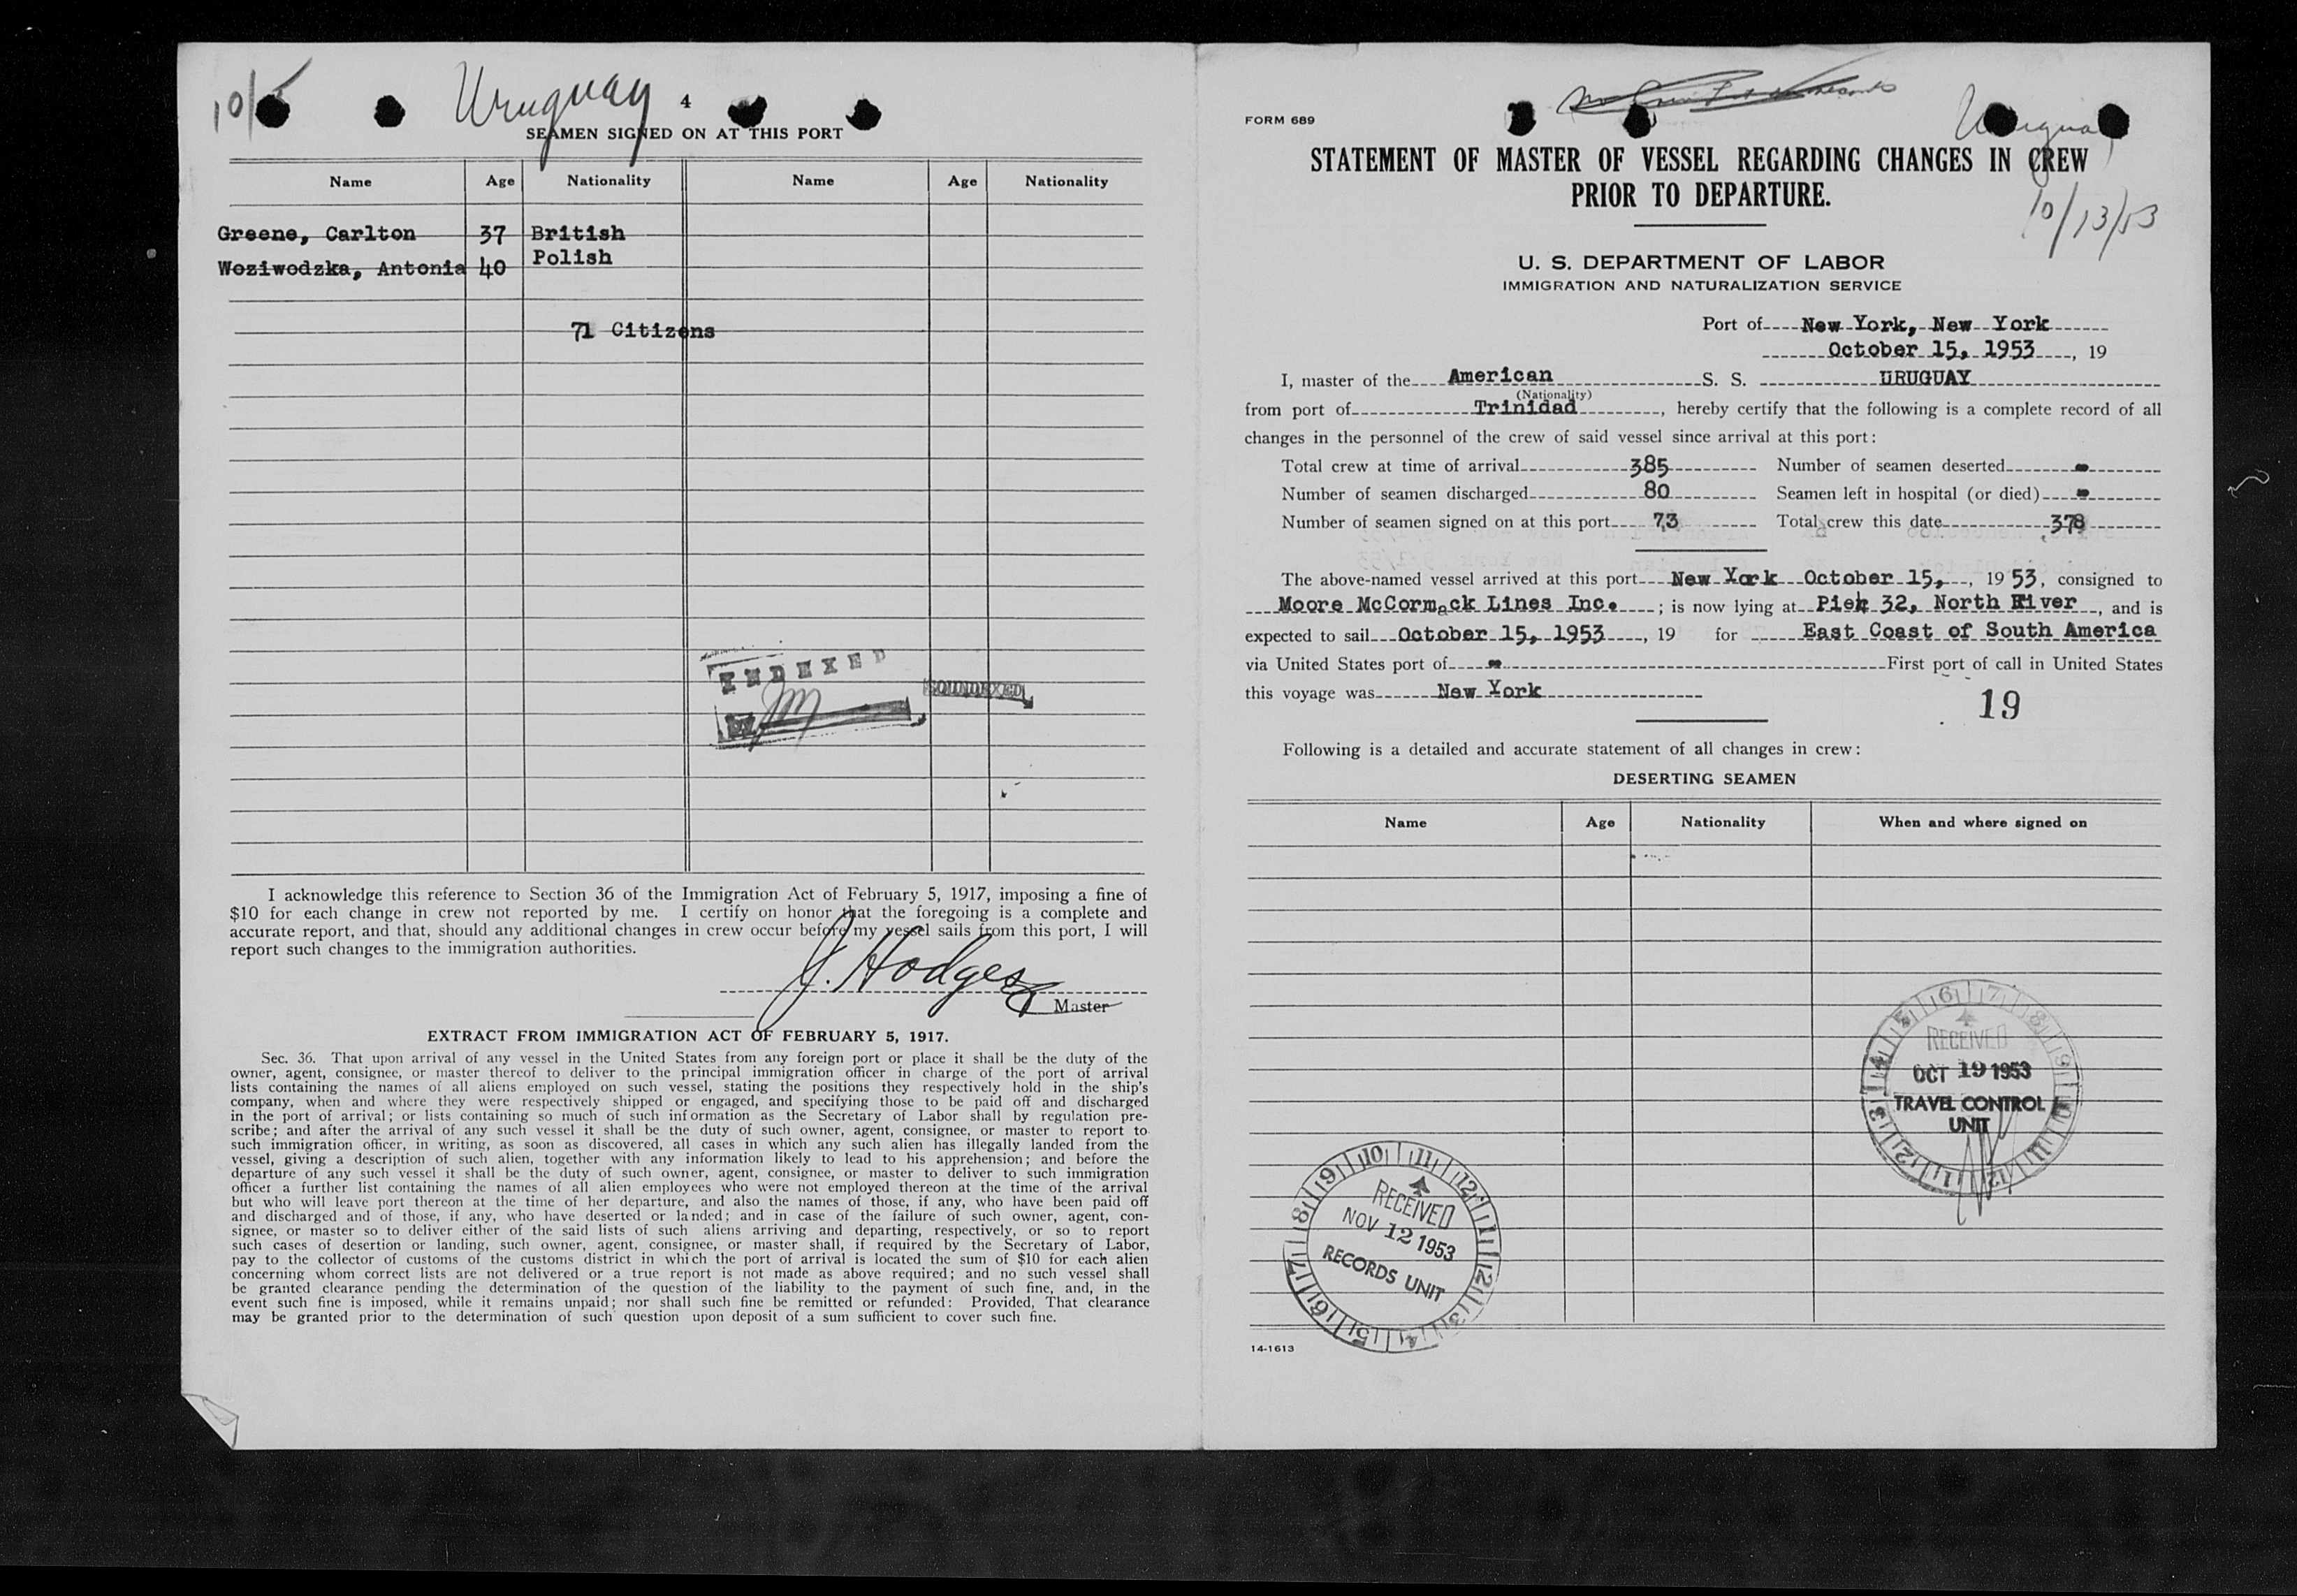 10/15
Uruguay
4
SEAMEN SIGNED ON AT THIS PORT
Name Age Nationality Name Age Nationality
Greene, Carlton 37 British
Woziwodzka, Antonia 40 Polish
71 Citizens
INDEXED
I acknowledge this reference to Section 36 of the Immigration Act of February 5, 1917, imposing a fine of
$10 for each change in crew not reported by me. I certify on honor that the foregoing is a complete and
accurate report, and that, should any additional changes in crew occur before my vessel sails from this port, I will
report such changes to the immigration authorities.
J. Hodges
Master
EXTRACT FROM IMMIGRATION ACT OF FEBRUARY 5, 1917.
Sec. 36. That upon arrival of any vessel in the United States from any foreign port or place it shall be the duty of the
owner, agent, consignee, or master thereof to deliver to the principal immigration officer in charge of the port of arrival
lists containing the names of all aliens employed on such vessel, stating the positions they respectively hold in the ship's
company, when and where they were respectively shipped or engaged, and specifying those to be paid off and discharged
in the port of arrival; or lists containing so much of such information as the Secretary of Labor shall by regulation pre-
scribe; and after the arrival of any such vessel it shall be the duty of such owner, agent, consignee, or master to report to
such immigration officer, in writing, as soon as discovered, all cases in which any such alien has illegally landed from the
vessel, giving a description of such alien, together with any information likely to lead to his apprehension; and before the
departure of any such vessel it shall be the duty of such owner, agent, consignee, or master to deliver to such immigration
officer a further list containing the names of all alien employees who were not employed thereon at the time of the arrival
but who will leave port thereon at the time of her departure, and also the names of those, if any, who have been paid off
and discharged and of those, if any, who have deserted or landed; and in case of the failure of such owner, agent, con-
signee, or master so to deliver either of the said lists of such aliens arriving and departing, respectively, or so to report
such cases of desertion or landing, such owner, agent, consignee, or master shall, if required by the Secretary of Labor,
pay to the collector of customs of the customs district in which the port of arrival is located the sum of $10 for each alien
concerning whom correct lists are not delivered or a true report is not made as above required; and no such vessel shall
be granted clearance pending the determination of the question of the liability to the payment of such fine, and, in the
event such fine is imposed, while it remains unpaid; nor shall such fine be remitted or refunded: Provided, That clearance
may be granted prior to the determination of such question upon deposit of a sum sufficient to cover such fine.
FORM 689
Uruguay
STATEMENT OF MASTER OF VESSEL REGARDING CHANGES IN CREW
PRIOR TO DEPARTURE.
10/13/53
U. S. DEPARTMENT OF LABOR
IMMIGRATION AND NATURALIZATION SERVICE
Port of New York, New York
October 15, 1953, 19
I, master of the American S. S. URUGUAY
(Nationality)
from port of Trinidad, hereby certify that the following is a complete record of all
changes in the personnel of the crew of said vessel since arrival at this port:
Total crew at time of arrival 385 Number of seamen deserted -
Number of seamen discharged 80 Seamen left in hospital (or died) -
Number of seamen signed on at this port 73 Total crew this date 378
The above-named vessel arrived at this port New York October 15, , 19 53, consigned to
Moore McCormack Lines Inc. ; is now lying at Pier 32, North River , and is
expected to sail October 15, 1953 , 19 for East Coast of South America
via United States port of - First port of call in United States
this voyage was New York
19
Following is a detailed and accurate statement of all changes in crew:
DESERTING SEAMEN
Name Age Nationality When and where signed on
RECEIVED
OCT 19 1953
TRAVEL CONTROL
UNIT
RECEIVED
NOV 12 1953
RECORDS UNIT
14-1613